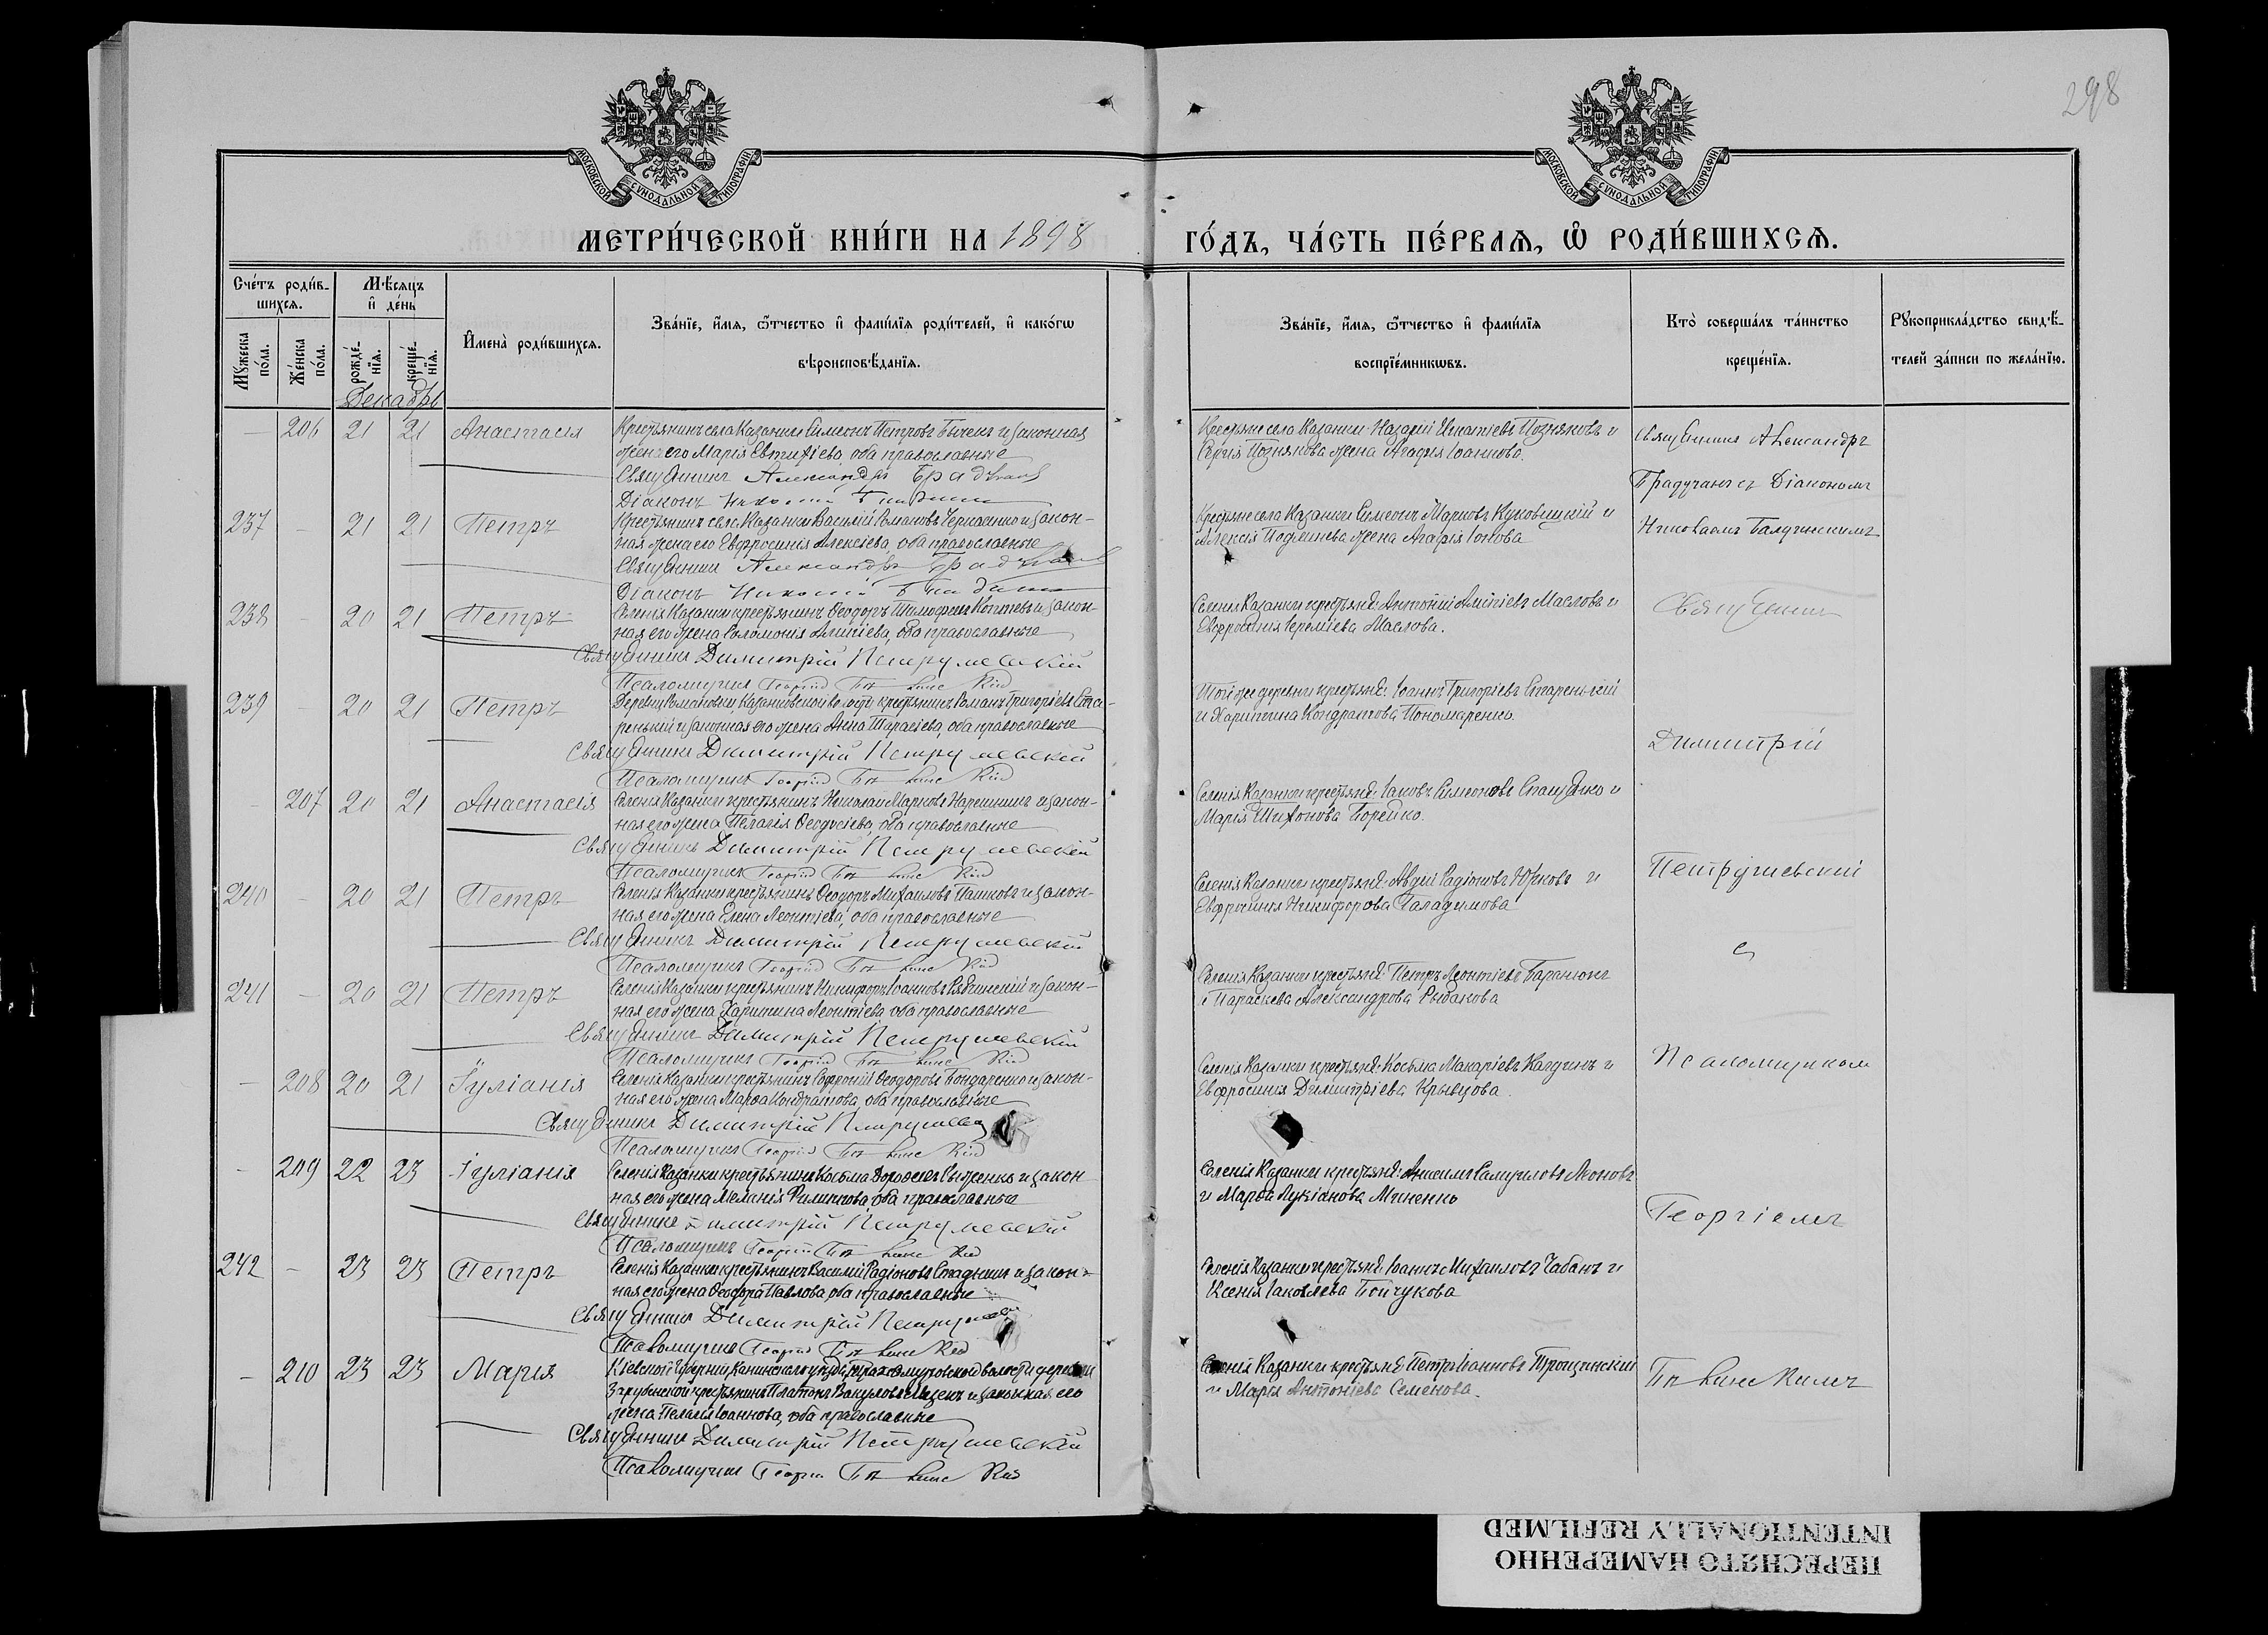 298
МОСКОВСКОЙ СѴНОДАЛЬНОЙ ТИПОГРАФІИ
МОСКОВСКОЙ СѴНОДАЛЬНОЙ ТИПОГРАФІИ
МЕТРИ́ЧЕСКОЙ КНИ́ГИ НА 1898 ГО́ДЪ, ЧА́СТЬ ПЕ́РВАѦ, Ѽ РОДИ́ВШИХСѦ.
Сче́тъ роди́в-
шихсѧ.
Мꙋ́жеска по́ла.
Же́нска по́ла.
Мѣ́сяцъ и҆ де́нь
рожде́-нїѧ.
креще́-нїѧ.
Декабрь
И҆мена̀ роди́вшихсѧ.
Зва́нїе, и҆́мѧ, ѻ҆́тчество и҆ фами́лїѧ роди́телей, и҆ како́гѡ
вѣроисповѣ́данїѧ.
Зва́нїе, и҆́мѧ, ѻ҆́тчество и҆ фами́лїѧ
воспрїе́мникѡвъ.
Кто̀ соверша́лъ та́инство
креще́нїѧ.
Рꙋкоприкла́дство свидѣ́-
телей за́писи по жела́нїю.
206 21 21 Анастасія
Крестьянинъ села Казанки Симеонъ Петровъ Бычекъ и законная
жена его Марія Евтихіева, оба православные
Священникъ Александръ
Діаконъ
Крестьяне села Казанки: Назарій Игнатіевъ Позняковъ и
Сергія Познякова жена Агафія Іоаннова.
Священникъ Александръ
Градучанъ съ Діакономъ
237 21 21 Петръ
Крестьянинъ села Казанки Василій Романовъ Черкасенко и закон-
ная жена его Евфросинія Алексіева, оба православные
Священникъ Александръ
Діаконъ
Крестьяне села Казанки Симеонъ Марковъ Куковицкій и
Алексія Подлинева жена Агафія Іонова
Николаемъ
238 20 21 Петръ
Селенія Казанки крестьянинъ Ѳеодоръ Тимофеевъ Коптевъ и закон-
ная его жена Соломонія Алипіева, оба православные
Священникъ Димитрій Петрушевскій
Псаломщикъ Георгій
Селенія Казанки крестьяне: Антоній Алипіевъ Масловъ и
Евфросинія Іереміева Маслова.
Священникъ
239 20 21 Петръ
Деревни Романовки Казанковской волости крестьянинъ Романъ Григоріевъ Ста-
ренькій и законная его жена Анна Тарасіева, оба православные
Священникъ Димитрій Петрушевскій
Псаломщикъ Георгій
Той же деревни крестьяне: Іоаннъ Григоріевъ Старенькій
и Харитина Кондратова Пономаренко.
Димитрій
207 20 21 Анастасія
Селенія Казанки крестьянинъ Николай Марковъ Нарешникъ и закон-
ная его жена Пелагія Ѳеодосіева, оба православные
Священникъ Димитрій Петрушевскій
Псаломщикъ Георгій
Селенія Казанки крестьяне: Іаковъ Симеоновъ Стаценко и
Марія Тихонова Борейко.
Петрушевскій
240 20 21 Петръ
Селенія Казанки крестьянинъ Ѳеодоръ Михаиловъ Пашковъ и закон-
ная его жена Елена Леонтіева, оба православные
Священникъ Димитрій Петрушевскій
Псаломщикъ Георгій
Селенія Казанки крестьяне: Авдій Радіоновъ Юрковъ и
Евфросинія Никифорова Паладимова
съ
241 20 21 Петръ
Селенія Казанки крестьянинъ Никифоръ Іоанновъ Рябчинскій и закон-
ная его жена Харитина Леонтіева, оба православные
Священникъ Димитрій Петрушевскій
Псаломщикъ Георгій
Селенія Казанки крестьяне: Петръ Леонтіевъ Баранюкъ
и Параскева Александрова Рыбакова
208 20 21 Іуліанія
Селенія Казанки крестьянинъ Софроній Ѳеодоровъ Бондаренко и закон-
ная его жена Марѳа Кондратова, оба православные
Священникъ Димитрій
Псаломщикъ Георгій
Селенія Казанки крестьяне: Косьма Макаріевъ Калдинъ и
Евфросинія Димитріева Кривцова.
Псаломщикомъ
209 22 23 Іуліанія
Селенія Казанки крестьянинъ Косьма Дороѳеевъ и закон
ная его жена Меланія Филиппова, оба православные
Священникъ Димитрій Петрушевскій
Псаломщикъ Георгій
Селенія Казанки крестьяне: Анисимъ Самуиловъ Леоновъ
и Марѳа Лукіанова Миненко
Георгіемъ
242 23 23 Петръ
Селенія Казанки крестьянинъ Василій Радіоновъ Складникъ и закон-
ная его жена Ѳеодора Павлова, оба православные
Священникъ Димитрій
Псаломщикъ Георгій
Селенія Казанки крестьяне: Іоаннъ Михаиловъ Чабанъ и
Ксенія Іаковлева Бойчукова
210 23 23 Марія
Кіевской Губерніи Каневскаго уѣзда волости деревни
крестьянинъ Платонъ Вакуловъ и законная его
жена Пелагія Іоаннова, оба православные
Священникъ Димитрій Петрушевскій
Псаломщикъ Георгій
Селенія Казанки крестьяне: Петръ Іоанновъ Трощинскій
и Марія Антоніева Семенова.
ПЕРЕСНЯТО НАМЕРЕННО
INTENTIONALLY REFILMED